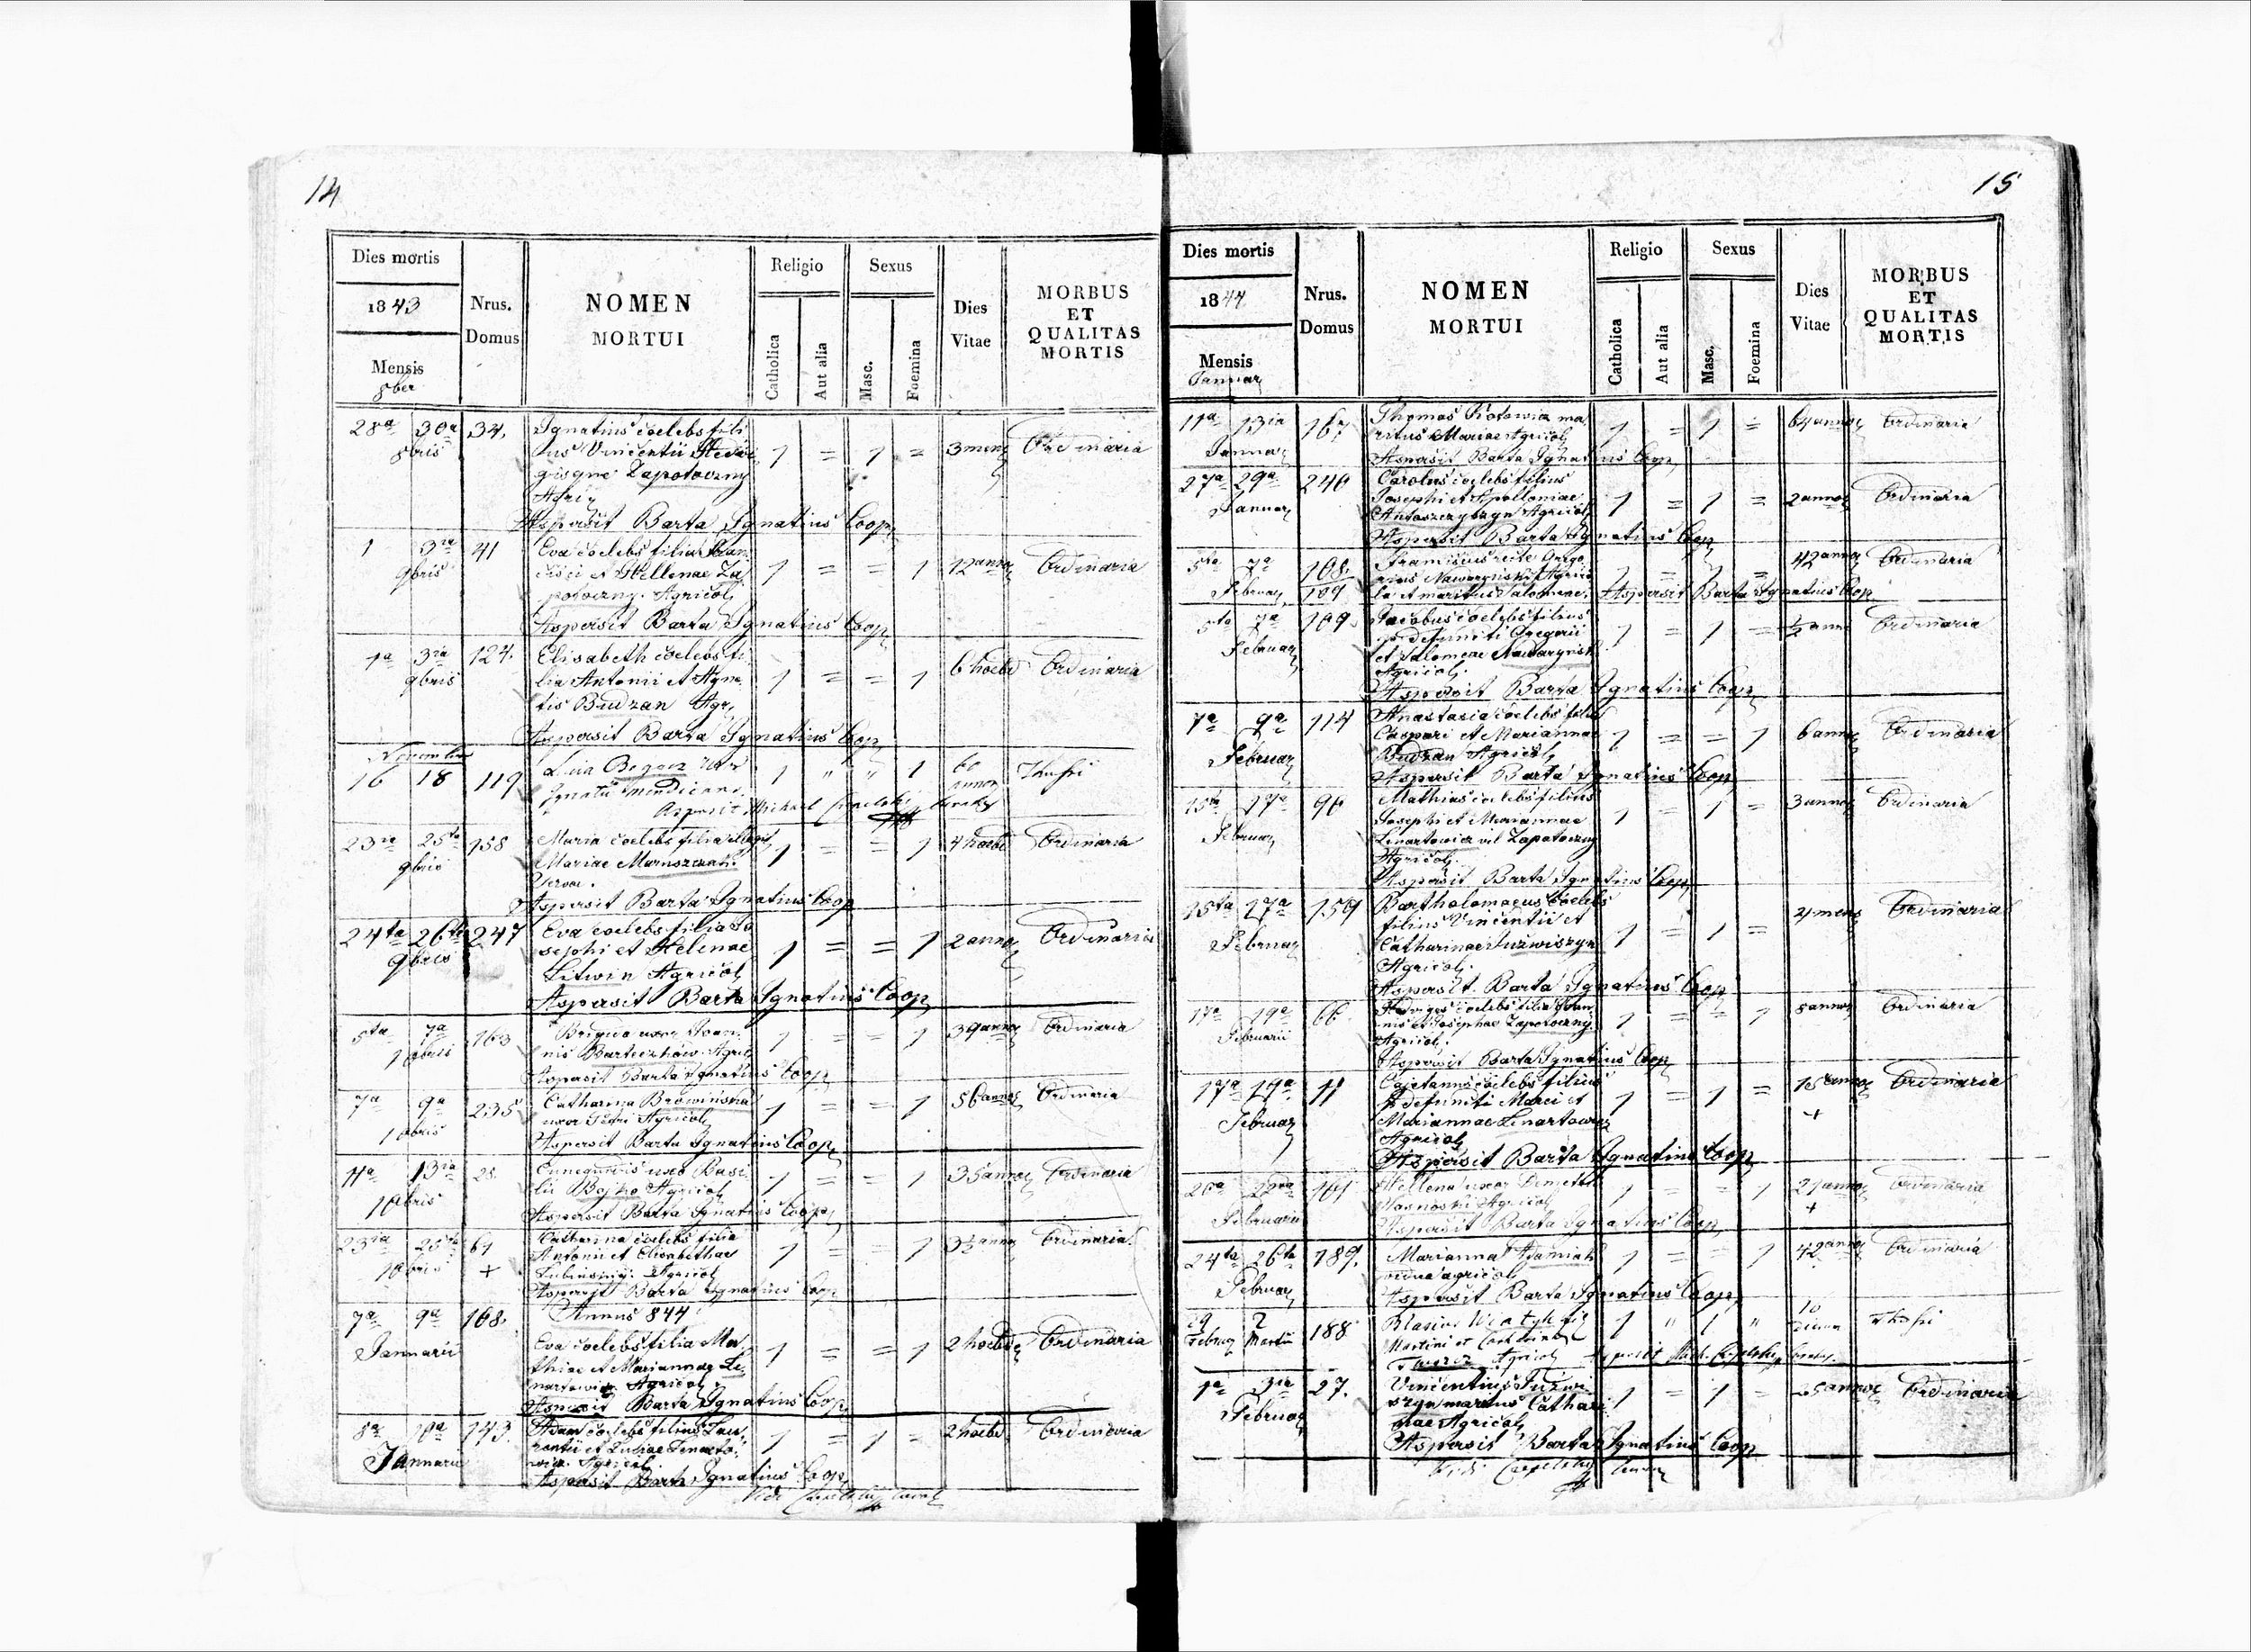 14
Dies mortis
1843
Mensis
8ber
Nrus.
Domus
NOMEN
MORTUI
Religio
Catholica
Aut alia
Sexus
Masc.
Foemina
Dies
Vitae
MORBUS
ET
QUALITAS
MORTIS
28a 30a 34. Ignatius coelebs fili
8bris us Vincentii Hedvi 1 = 1 = 3 mens Ordinaria
gisque Zapotoczny
Agric
Aspersit Barta Ignatius Coop
1 3ia 41 Eva coelebs filia
9bris cisci et Hellenae Za 1 = = 1 12 annos Ordinaria
potoczny. Agricol
Aspersit Barta Ignatius Coop
1a 3ia 124. Elisabeth coelebs fi
9bris lia Antonii et Agne 1 = = 1 6 hoebd Ordinaria
tis Budzan Agr.
Aspersit Barta Ignatius Coop
November
16 18 119 Begacz 1 " " 1 60
Ignatii mendicans annor
Aspersit Michael
23ia 25ta 158 Maria coelebs filia illegit
9bris Mariae 1 = = 1 4 hoebd Ordinaria
Aspersit Barta Ignatius Coop
24ta 26ta 247 Eva coelebs filia Jo
9bris sephi et Helenae 1 = = 1 2 annos Ordinaria
Litwin Agricol
Aspersit Barta Ignatius Coop
5ta 7a 163 Brigida uxor Joan
10bris nis Agric 1 = = 1 39 annos Ordinaria
Aspersit Barta Ignatius Coop
7a 9a 235 Catharina Browinska
10bris uxor Petri Agricol 1 = = 1 56 annos Ordinaria
Aspersit Barta Ignatius Coop
11a 13ia 28. Cunegundis uxor Basi
10bris lii Bojko Agricol 1 = = 1 35 annos Ordinaria
Aspersit Barta Ignatius Coop
23ia 25ta Catharina coelebs filia
10bris + Antonii et Elisabethae 1 = = 1 3½ annos Ordinaria
Agricol
Aspersit Barta Ignatius Coop
7a 9a 168. Annus 844
Januarii Eva coelebs filia Ma
thiae et Mariannae Le 1 = = 1 2 hoebd Ordinaria
nartowicz Agricol
Aspersit Barta Ignatius Coop
8a 10a 143. Adam coelebs filius Lau
Januarii rentii et Luciae Lenarto 1 = 1 = 2 hoebd Ordinaria
wicz. Agricol.
Aspersit Barta Ignatius Coop
Vidi
15
Dies mortis
1844
Mensis
Januar
Nrus.
Domus
NOMEN
MORTUI
Religio
Catholica
Aut alia
Sexus
Masc.
Foemina
Dies
Vitae
MORBUS
ET
QUALITAS
MORTIS
11a 13ia 167 Thomas ma
Januar ritus Mariae Agricol 1 = 1 = 64 annos Ordinaria
Aspersit Barta Ignatius Coop
27a 29a 246 Carolus coelebs filius
Januar Josephi et Apolloniae 1 = 1 = 2 annos Ordinaria
Antoszczyszyn Agricol
Aspersit Barta Ignatius Coop
5ta 7a 108. Franciscus recte Grego
Februar 109 rius Agrico 1 = 1 = 42 annos Ordinaria
la et maritus Salomeae. Aspersit Barta Ignatius Coop
5ta 7a 109. Jacobus coelebs filius
Februar defuncti Gregorii 1 = 1 = ½ ann Ordinaria
et Salomeae
Agricol.
Aspersit Barta Ignatius Coop
7a 9a 114 Anastasia coelebs filia
Februar Caspari et Mariannae 1 = = 1 6 annos Ordinaria
Budzan Agricol,
Aspersit Barta Ignatius Coop
15ta 17a 96 Mathias coelebs filius
Februar Josephi et Mariannae 1 = 1 = 3 annos Ordinaria
Linartowicz vel Zapotoczny
Agricol.
Aspersit Barta Ignatius Coop
15ta 17a 159 Bartholomaeus coelebs
Februar filius Vincentii et 1 = 1 = 4 mens Ordinaria
Catharinae Juzwiszyn
Agricol.
Aspersit. Barta Ignatius Coop
17a 19a 66 Hedviges coelebs filia Joan
Februarii nis et Josephae Zapotoczny 1 = = 1 8 annos Ordinaria
Agricol.
Aspersit Barta Ignatius Coop
17a 19a 11 Cajetanus coelebs filius
Februar defuncti Marci et 1 = 1 = 18 annos Ordinaria
Mariannae Linartowicz +
Agricol
Aspersit Barta Ignatius Coop
20a 22da Hellena uxor Demetrii
Februarii Agricol 1 = = 1 21 annos Ordinaria
Aspersit Barta Ignatius Coop +
24ta 26ta 189. Marianna Adamiak 1 = = 1 42 annos Ordinaria
Februar vidua agricol
Aspersit Barta Ignatius Coop
29 2 188 Blasius Wiatyk fil 1 " 1 " 10
Februar Martii Martini et Catharinae dierum
Agricol Aspersit Mich.
1a 3ia 27. Vincentius Juzwi
Februar szyn maritus Cathari 1 = 1 = annos Ordinaria
nae Agricol
Aspersit Barta Ignatius Coop
Vidi